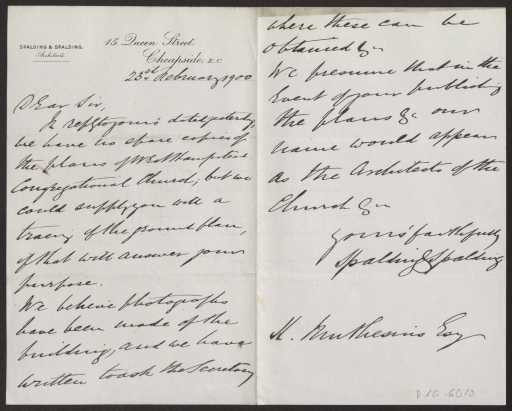 SPALDING & SPALDING.
Architects.
15 Queen Street,
Cheapside, E.C.
23rd February 1900
Dear Sir,
In reply to yours dated yesterday
we have no spare copies of
the plans of West Hampstead
Congregational Church, but we
could supply you with a
tracing of the ground plan,
if that will answer your
purpose.
We believe photographs
have been made of the
building, and we have
written to ask the Secretary
where these can be
obtained &c.
We presume that in the
event of your publishing
the plans &c our
name would appear
as the Architects of the
Church &c
yours faithfully
Spalding & Spalding
H. Muthesius Esq